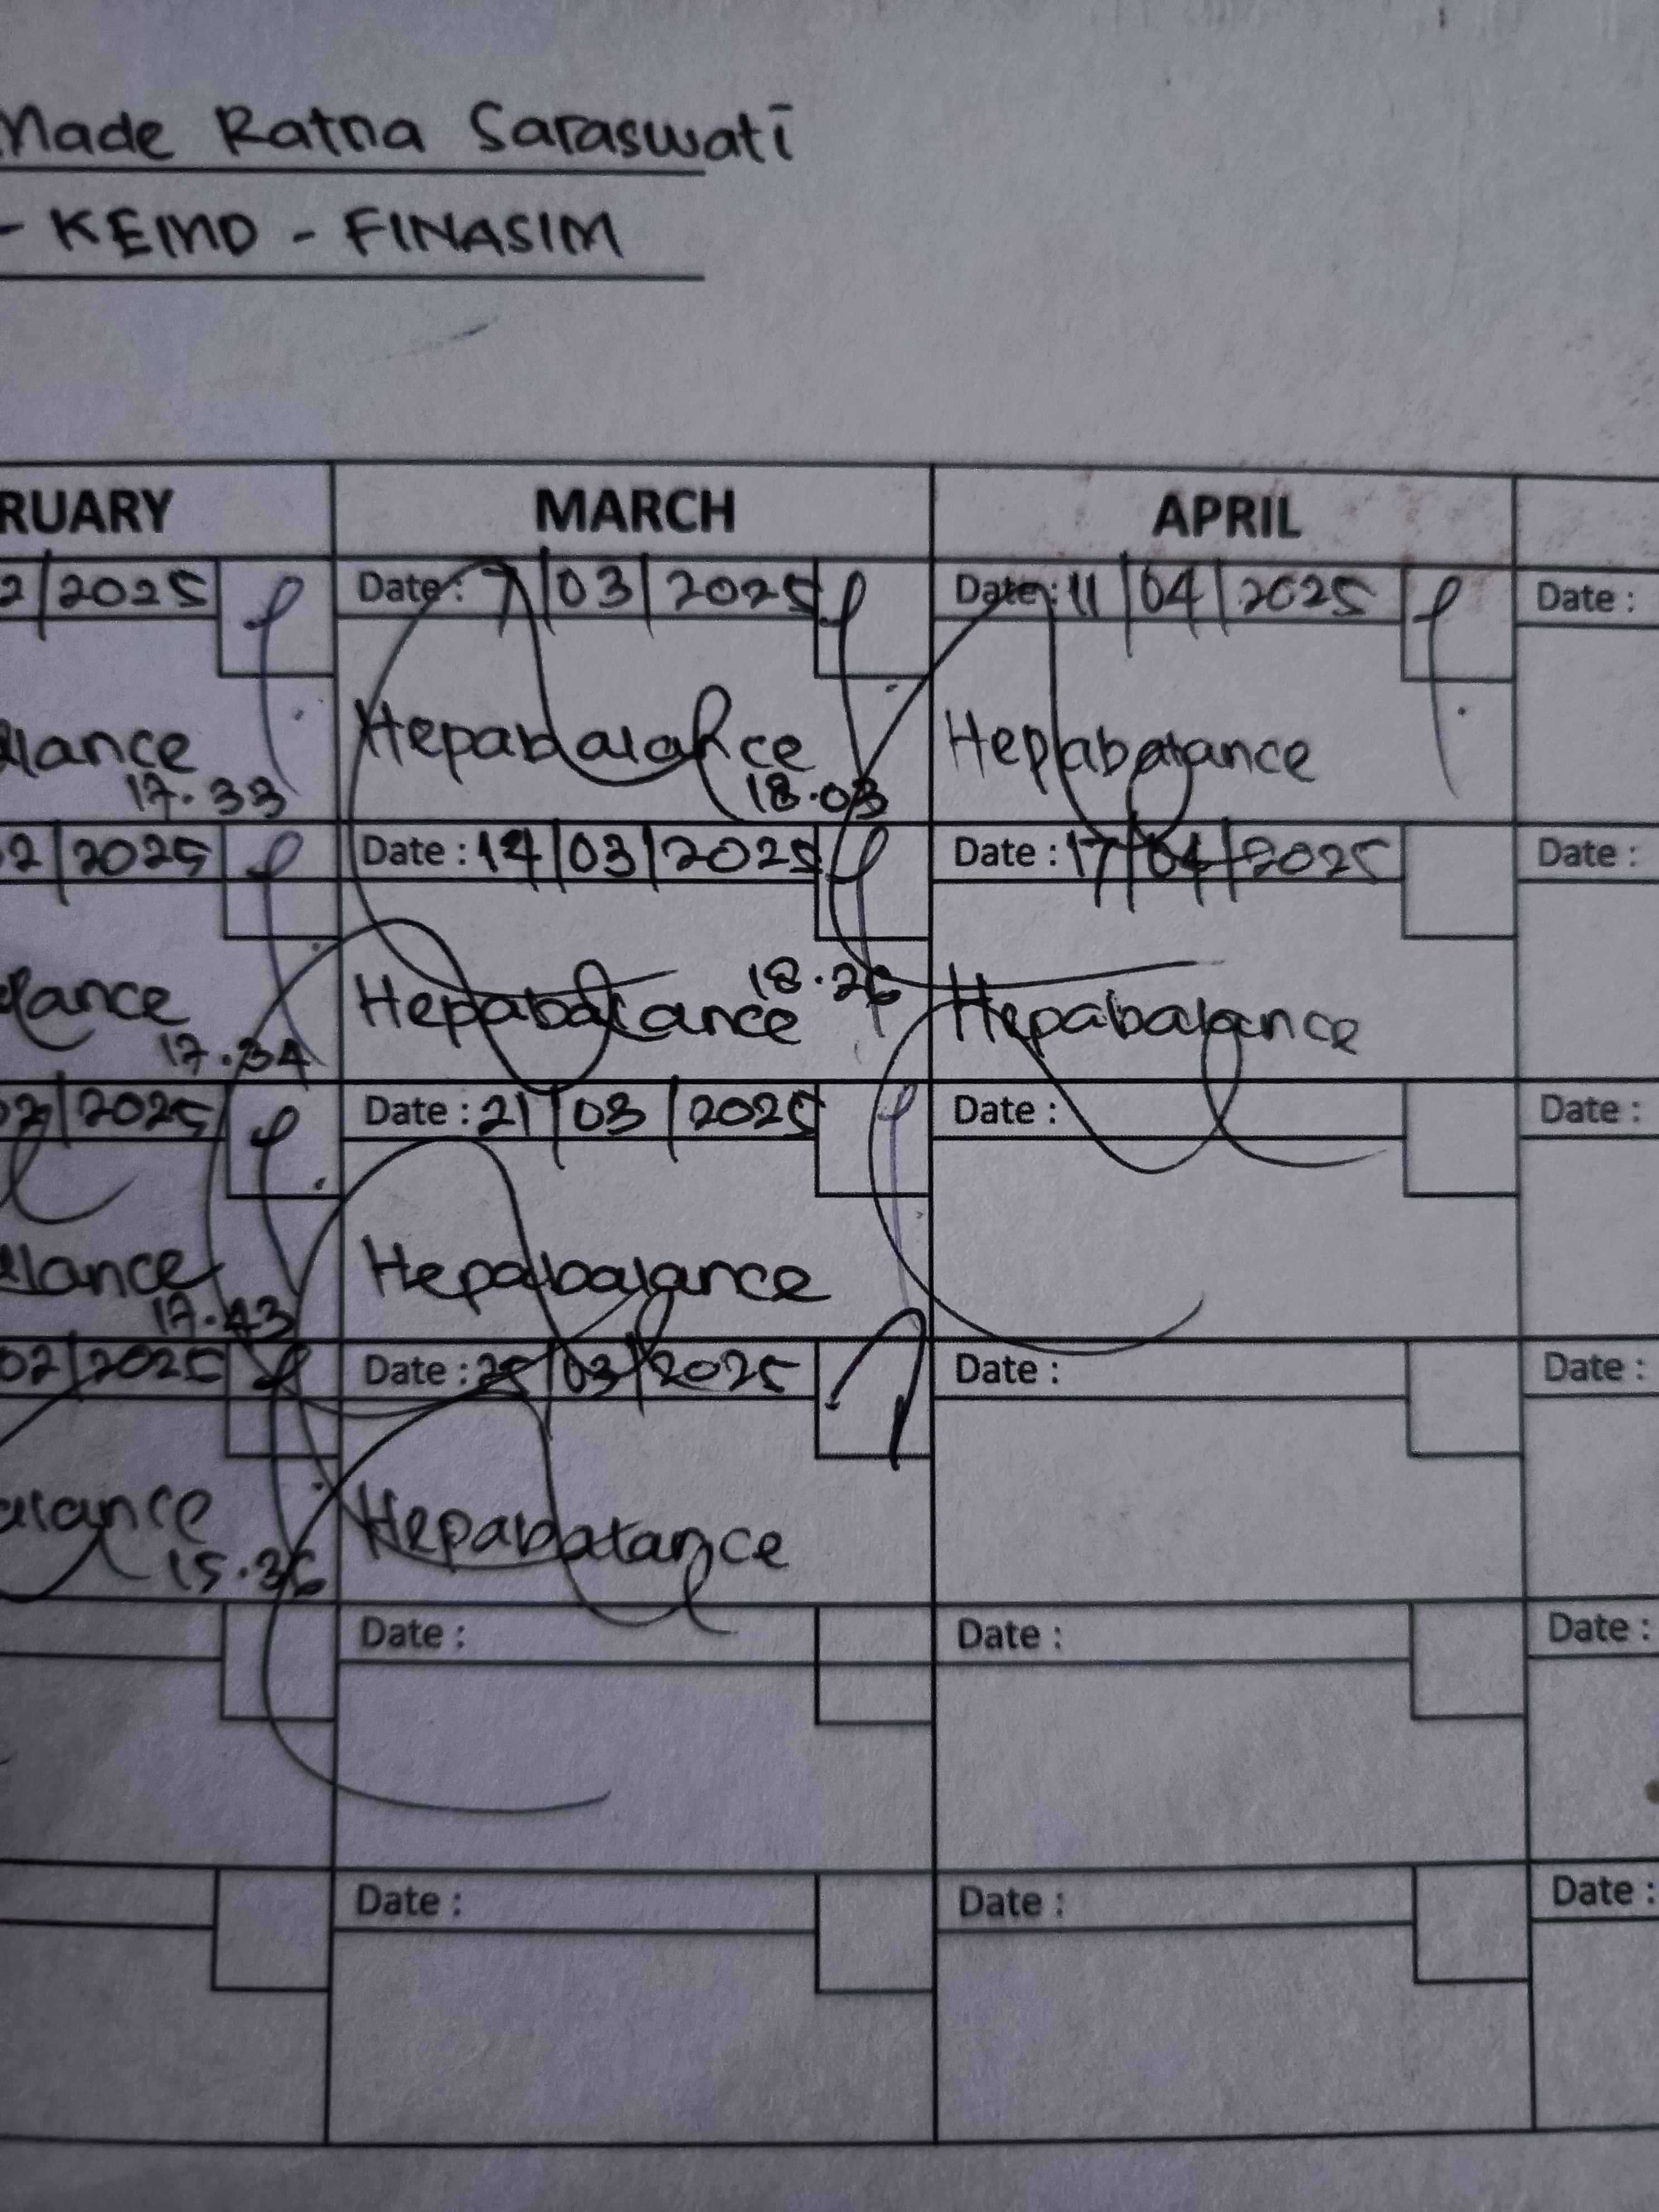 Made Ratna Saraswati
- KEMD - FINASIM
RUARY MARCH APRIL
2/2025 Date : 7/03/2025 Date : 11/04/2025 Date :
alance Hepabalance Hepabalance
17.33 18.03
2/2025 Date : 14/03/2025 Date : 17/04/2025 Date :
alance Hepabalance 18.26 Hepabalance
17.34
02/2025 Date : 21/03/2025 Date : Date :
alance Hepabalance
17.43
02/2025 Date : 25/03/2025 Date : Date :
alance Hepabalance
15.36
Date : Date : Date :
Date : Date : Date :